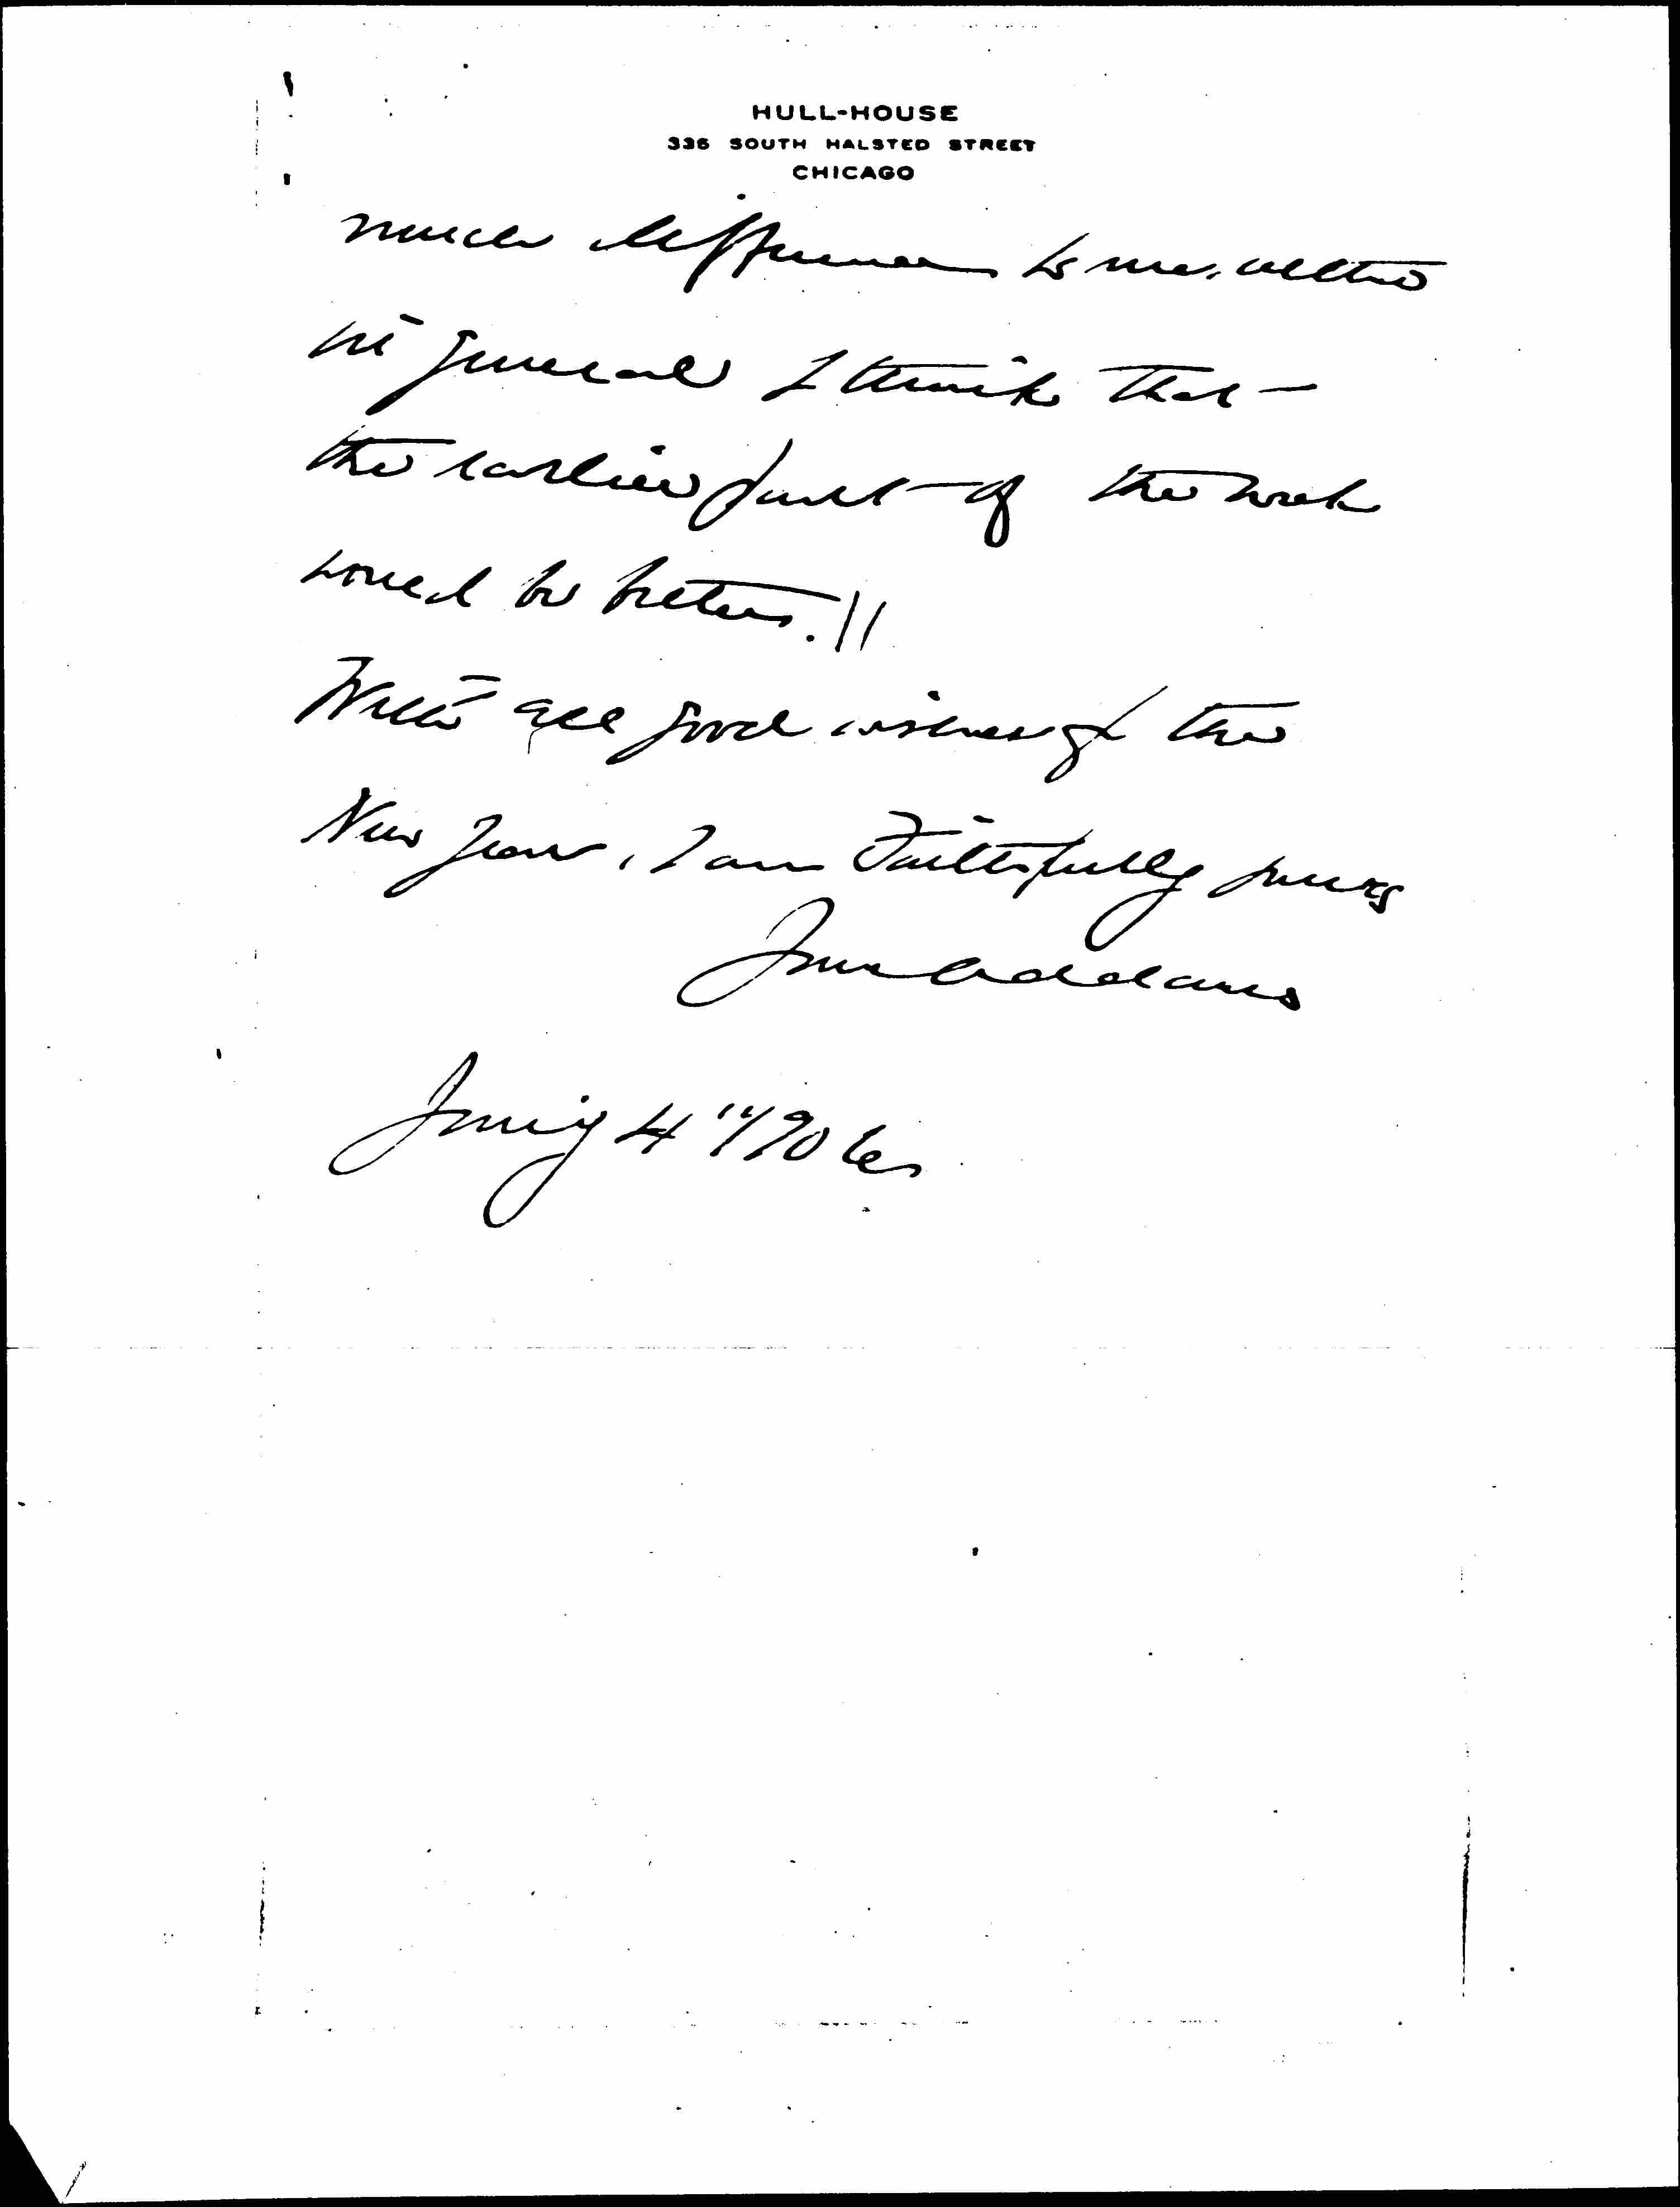 HULL-HOUSE
336 SOUTH HALSTED STREET
CHICAGO
much difference to me. altho
in general I think that
the earlier part of the week
would be better.!!
With all good wishes of the
New Year, I am Faithfully yours
Jane Addams
Jan'y 4" 1906